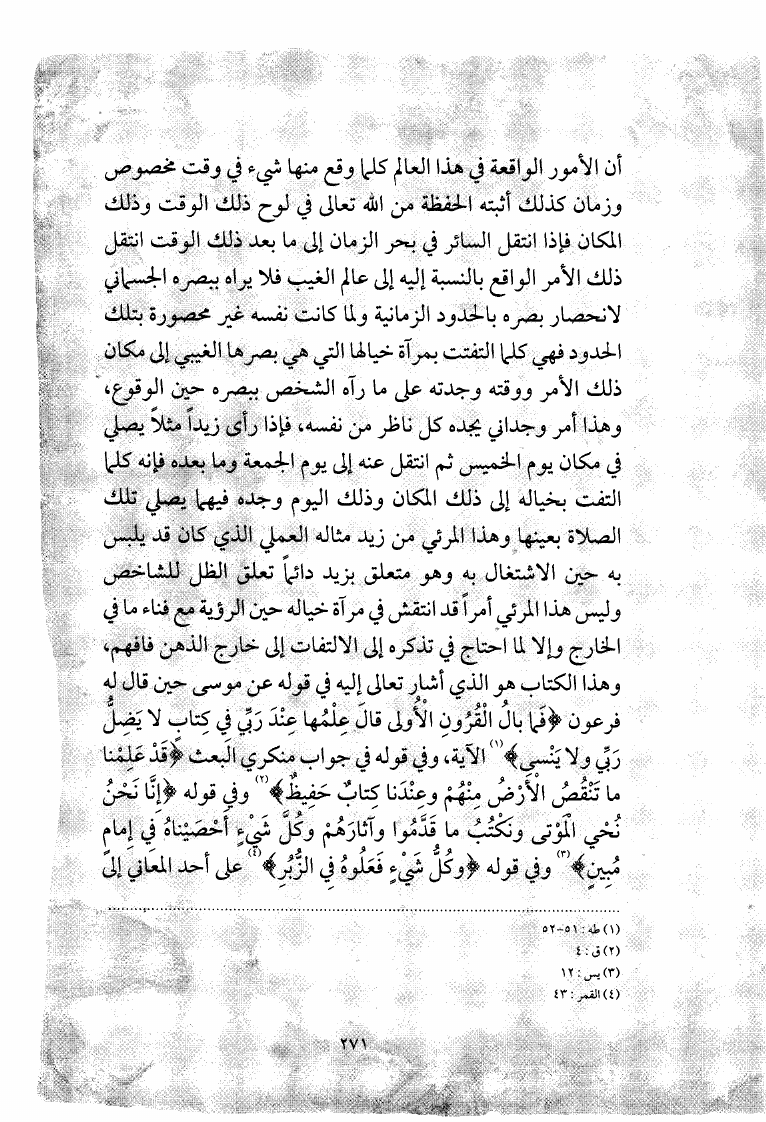 أن الأمور الواقعة في هذا العالم كلما وقع منها شيء في وقت مخصوص
وزمان كذلك أثبته الحفظة من الله تعالى في لوح ذلك الوقت وذلك
المكان فإذا انتقل السائر في بحر الزمان إلى ما بعد ذلك الوقت انتقل
ذلك الأمر الواقع بالنسبة إليه إلى عالم الغيب فلا يراه ببصره الجسماني
لانحصار بصره بالحدود الزمانية ولما كانت نفسه غير محصورة بتلك
الحدود فهي كلما التفتت بمرآة خيالها التي هي بصرها الغيبي إلى مكان
ذلك الأمر ووقته وجدته على ما رآه الشخص ببصره حين الوقوع،
وهذا أمر وجداني يجده كل ناظر من نفسه، فإذا رأى زيداً مثلاً يصلي
في مكان يوم الخميس ثم انتقل عنه إلى يوم الجمعة وما بعده فإنه كلما
التفت بخياله إلى ذلك المكان وذلك اليوم وجده فيهما يصلي تلك
الصلاة بعينها وهذا المرئي من زيد مثاله العملي الذي كان قد يلبس
به حين الاشتغال به وهو متعلق بزيد دائماً تعلق الظل للشاخص
وليس هذا المرئي أمراً قد انتقش في مرآة خياله حين الرؤية مع فناء ما في
الخارج وإلا لما احتاج في تذكره إلى الالتفات إلى خارج الذهن فافهم،
وهذا الكتاب هو الذي أشار تعالى إليه في قوله عن موسى حين قال له
فرعون ﴿فَما بالُ الْقُرُونِ الْأُولى قالَ عِلْمُها عِنْدَ رَبِّي في كِتابٍ لا يَضِلُّ
رَبِّي ولا يَنْسى﴾(١) الآية، وفي قوله في جواب منكري البعث ﴿قَدْ عَلِمْنا
ما تَنْقُصُ الْأَرْضُ مِنْهُمْ وعِنْدَنا كِتابٌ حَفِيظٌ﴾(٢) وفي قوله ﴿إِنَّا نَحْنُ
نُحْيِ الْمَوْتى ونَكْتُبُ ما قَدَّمُوا وآثارَهُمْ وكُلَّ شَيْءٍ أَحْصَيْناهُ فِي إِمامٍ
مُبِينٍ﴾(٣) وفي قوله ﴿وكُلُّ شَيْءٍ فَعَلُوهُ فِي الزُّبُرِ﴾(٤) على أحد المعاني إلى
(١) طه: ٥١-٥٢
(٢) ق: ٤
(٣) يس: ١٢
(٤) القمر: ٤٣
٢٧١